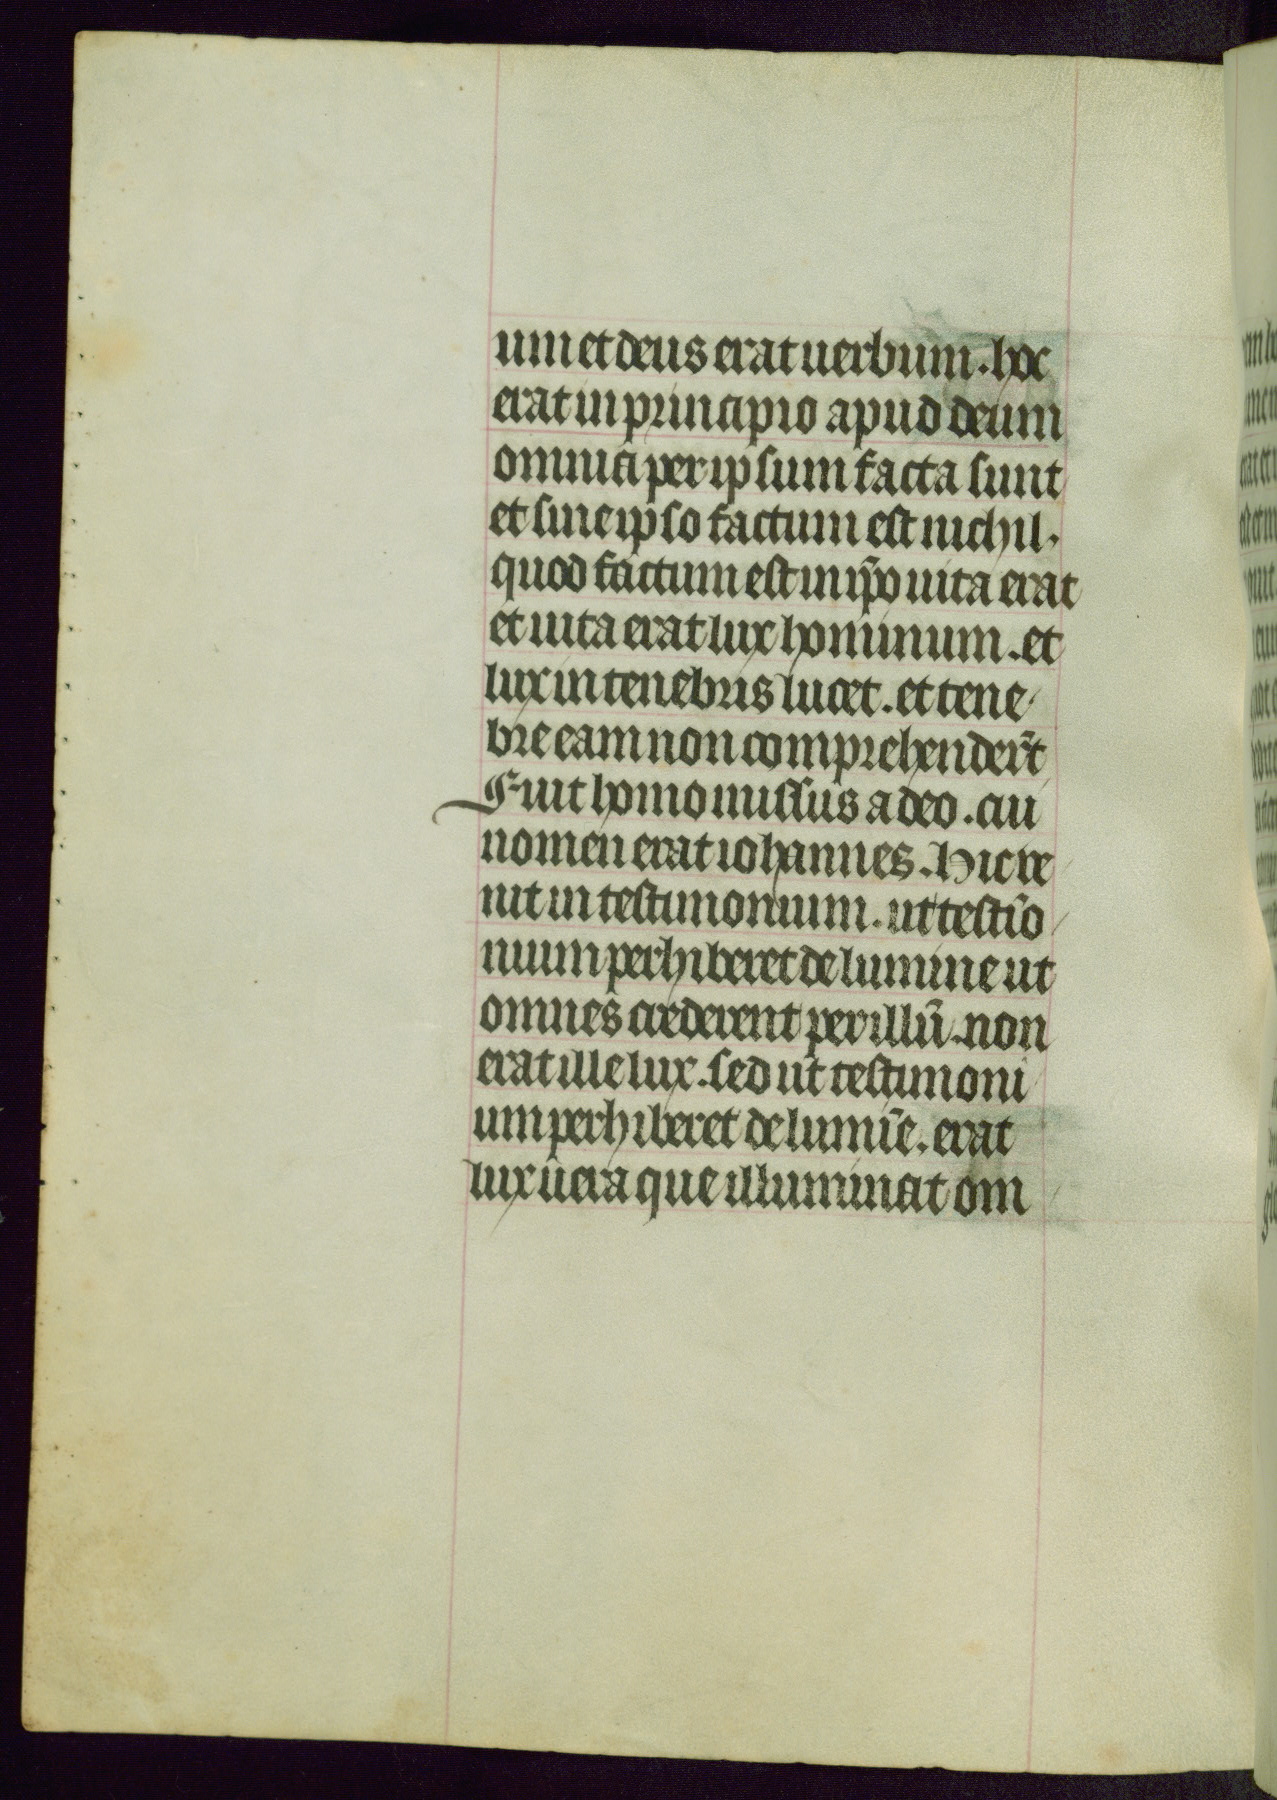 um et deus erat uerbum. hoc
erat in principio apud deum
omnia per ipsum facta sunt
et sine ipso factum est nichil.
quod factum est in ip̄o uita erat
et uita erat lux hominum. et
lux in tenebris lucet. et tene
bre eam non comprehender̄t
Fuit homo missus a deo. cui
nomen erat iohannes. Hic ve
nit in testimonium. ut testīo
nium perhiberet de lumine ut
omnes crederent per illū. non
erat ille lux. sed ut testimoni
um perhiberet de lumīe. erat
lux uera que illuminat om